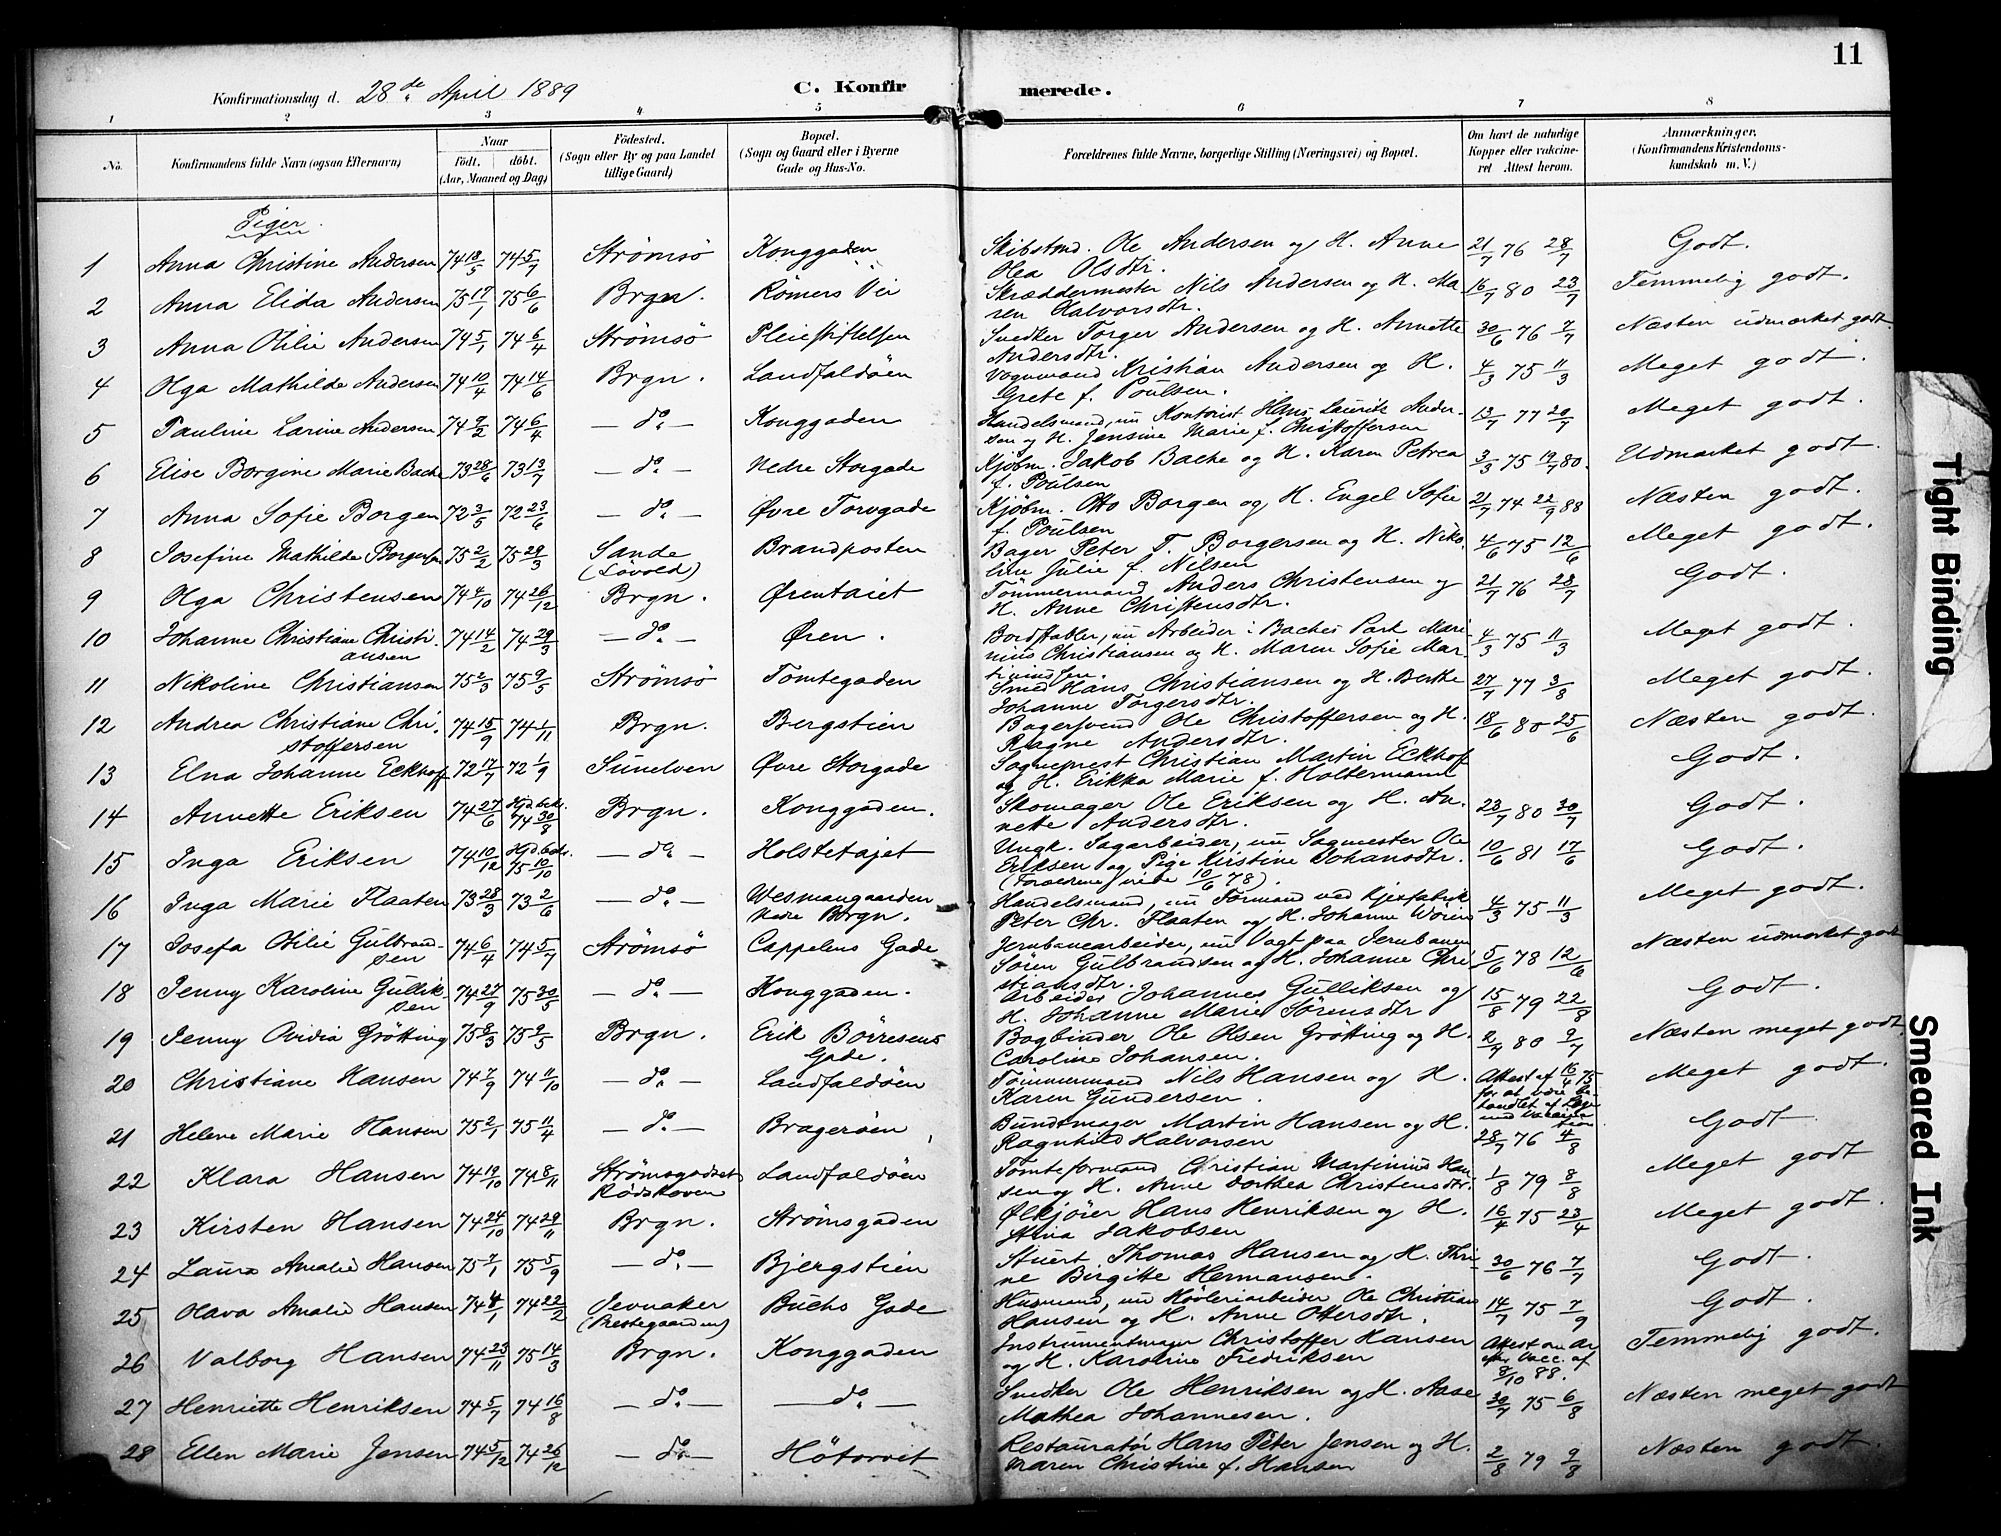 11
Konfirmationsdag d. 28de April 1889 C. Konfirmerede.
1 2 3 4 5 6 7 8
No. Konfirmandens fulde Navn (ogsaa Efternavn) Naar Födt. döbt. (Aar, Maaned og Dag) Födested. (Sogn eller By og paa Landet tillige Gaard) Bopæl. (Sogn og Gaard eller i Byerne Gade og Hus-No. Forældrenes fulde Navne, borgerlige Stilling (Næringsvei) og Bopæl. Om havt de naturlige Kopper eller vaccineret Attest herom. Anmærkninger. (Konfirmandens Kristendomskundskab m. V.)
Piger
1 Anna Christine Andersen 74 18/5 74 5/7 Strömsö Konggaden Skibstmd. Ole Andersen og H. Anne Olea Olsdtr. 21/7 76 28/7 Godt.
2 Anna Elida Andersen 75 17/1 75 6/6 Brgn. Römers Vei Skræddermester Nils Andersen og H. Maren Halvorsdtr. 16/7 80 23/7 Temmelig godt.
3 Anna Otilie Andersen 74 5/1 74 6/4 Strömsö Pleiestiftelsen Snedker Torger Andersen og H. Annette Andersdtr. 30/6 76 7/7 Næsten udmærket godt.
4 Olga Mathilde Andersen 74 10/4 74 14/6 Brgn. Landfaldöen Vognmand Kristian Andersen og H. Grete f. Poulsen. 4/3 75 11/3 Meget godt.
5 Pauline Larine Andersen 74 9/2 74 6/4 — do — Konggaden Handelsmand, nu Kontorist Hans Lauritz Andersen og H. Jensine Marie f. Christoffersen 13/7 77 20/7 Meget godt.
6 Elise Borgine Marie Bache 73 28/6 73 13/7 — do — Nedre Storgade Kjöbm. Jakob Bache og H. Karen Petrea f. Poulsen 3/3 75 19/7 80. Udmærket godt.
7 Anna Sofie Borgen 72 3/5 72 23/6 — do — Øvre Torvgade Kjöbm. Otto Borgen og H. Engel Sofie f. Poulsen 21/7 74 22/9 88 Næsten godt.
8 Josefine Mathilde Borgersen 75 2/2 75 29/3 Sande (Lövold) Brandposten Bager Peter T. Borgersen og H. Nikoline Julie f. Nilsen 4/6 75 12/6 Meget godt.
9 Olga Christensen 74 4/10 74 26/12 Brgn. Ørentaiet Tömmermand Anders Christensen og H. Anne Christensdtr. 21/7 76 28/7 Godt.
10 Johanne Christiane Christiansen 74 14/2 74 29/3 — do — Øren. Bordstabler, nu Arbeider i Baches Park Marinius Christiansen og H. Maren Sofie Martiniussen. 4/3 75 11/3 Meget godt.
11 Nikoline Christiansen 75 2/3 75 9/5 Strömsö Tomtegaden Smed Hans Christiansen og H. Berthe Johanne Torgersdtr. 27/7 77 3/8 Meget godt.
12 Andrea Christiane Christoffersen 74 15/9 74 1/11 Brgn. Bergstien Bagersvend Ole Christoffersen og H. Ragne Andersdtr. 18/6 80 25/6 Næsten godt.
13 Elna Johanne Eckhoff 72 17/7 72 1/9 Sunelven Øvre Storgade Sogneprest Christian Martin Eckhoff og H. Erikka Marie f. Holtermann Godt.
14 Annette Eriksen 74 27/6 Hjd. bekr. 74 30/8 Brgn. Konggaden. Skomager Ole Eriksen og H. Annette Andersdtr. 23/7 80 30/7 Godt.
15 Inga Eriksen 74 10/12 Hjd. bekr. 75 10/10 — do — Holstetajet Ungk. Sagarbeider, nu Sagmester Ole Eriksen og Pige Kirstine Johansdtr. (Forældrene viede 10/6 78). 10/6 81 17/6 Godt.
16 Inga Marie Flaaten 73 28/3 73 2/6 — do — Wesmangaarden Nedre Brgn. Handelsmand, nu Formand ved Kjexfabrik Peter Chr. Flaaten og H. Johanne 4/3 75 11/3 Meget godt.
17 Josefa Otilie Gulbrandsen 74 6/4 74 5/7 Strömsö Cappelens Gade Jernbanearbeider, nu Vagt paa Jernbanen Sören Gulbrandsen og H. Johanne Christiansdtr. 5/6 78 12/6 Næsten udmærket godt
18 Jenny Karoline Gulliksen 74 27/9 75 30/5 — do — Konggaden. Arbeider Johannes Gulliksen og H. Johanne Marie Sörensdtr 15/8 79 22/8 Godt.
19 Jenny Ovidia Grötting 75 9/3 75 9/5 Brgn. Erik Börresens Gade. Bogbinder Ole Olsen Grötting og H. Caroline Johansen. 2/7 80 9/7 Næsten meget godt
20 Christiane Hansen 74 7/9 74 11/10 — do — Landfaldöen Tömmermand Nils Hansen og H. Karen Gundersen. Attest af 16/4 75 for at være behandlet af Læge med vaccination Meget godt.
21 Helene Marie Hansen 75 2/1 75 11/4 — do — Brageröen Bundtmager Martin Hansen og H. Ragnhild Halvorsen 28/7 76 4/8 Godt
22 Klara Hansen 74 19/10 74 8/11 Strömsgodset Rödskoven Landfaldöen Tomteformand Christian Martinius Hansen og H. Anne Dorthea Christensdtr. 1/8 79 8/8 Meget godt
23 Kirsten Hansen 74 24/10 74 29/11 Brgn. Strömsgaden Ølkjörer Hans Henriksen og H. Jakobsen 16/4 75 23/4 Meget godt.
24 Laura Amalie Hansen 75 7/1 75 5/9 — do — Bjergstien Stuert Thomas Hansen og H. Thrine Birgitte Hermansen. 30/6 76 7/7 Godt.
25 Olava Amalie Hansen 74 4/1 74 22/2 Jevnaker (Prestegaarden) Buchs Gade Husmand, nu Høvleriarbeider Ole Christian Hansen og H. Anne Ottersdtr. 14/7 75 7/9 Godt.
26 Valborg Hansen 74 23/11 75 14/3 Brgn. Konggaden Instrumentmager Christoffer Hansen og H. Karoline Fredriksen Attest om Ar efter Vacc. af 8/10 88. Temmelig godt.
27 Henriette Henriksen 74 5/7 74 16/8 — do — — do — Snedker Ole Henriksen og H. Aase Mathea Johannesen. 30/7 75 6/8 Næsten meget godt
28 Ellen Marie Jensen 74 5/12 74 26/12 — do — Hötorvet Restauratör Hans Peter Jensen og H. Maren Christine f. Hansen 2/8 79 9/8 Næsten godt.
Tight Binding
Smeared Ink